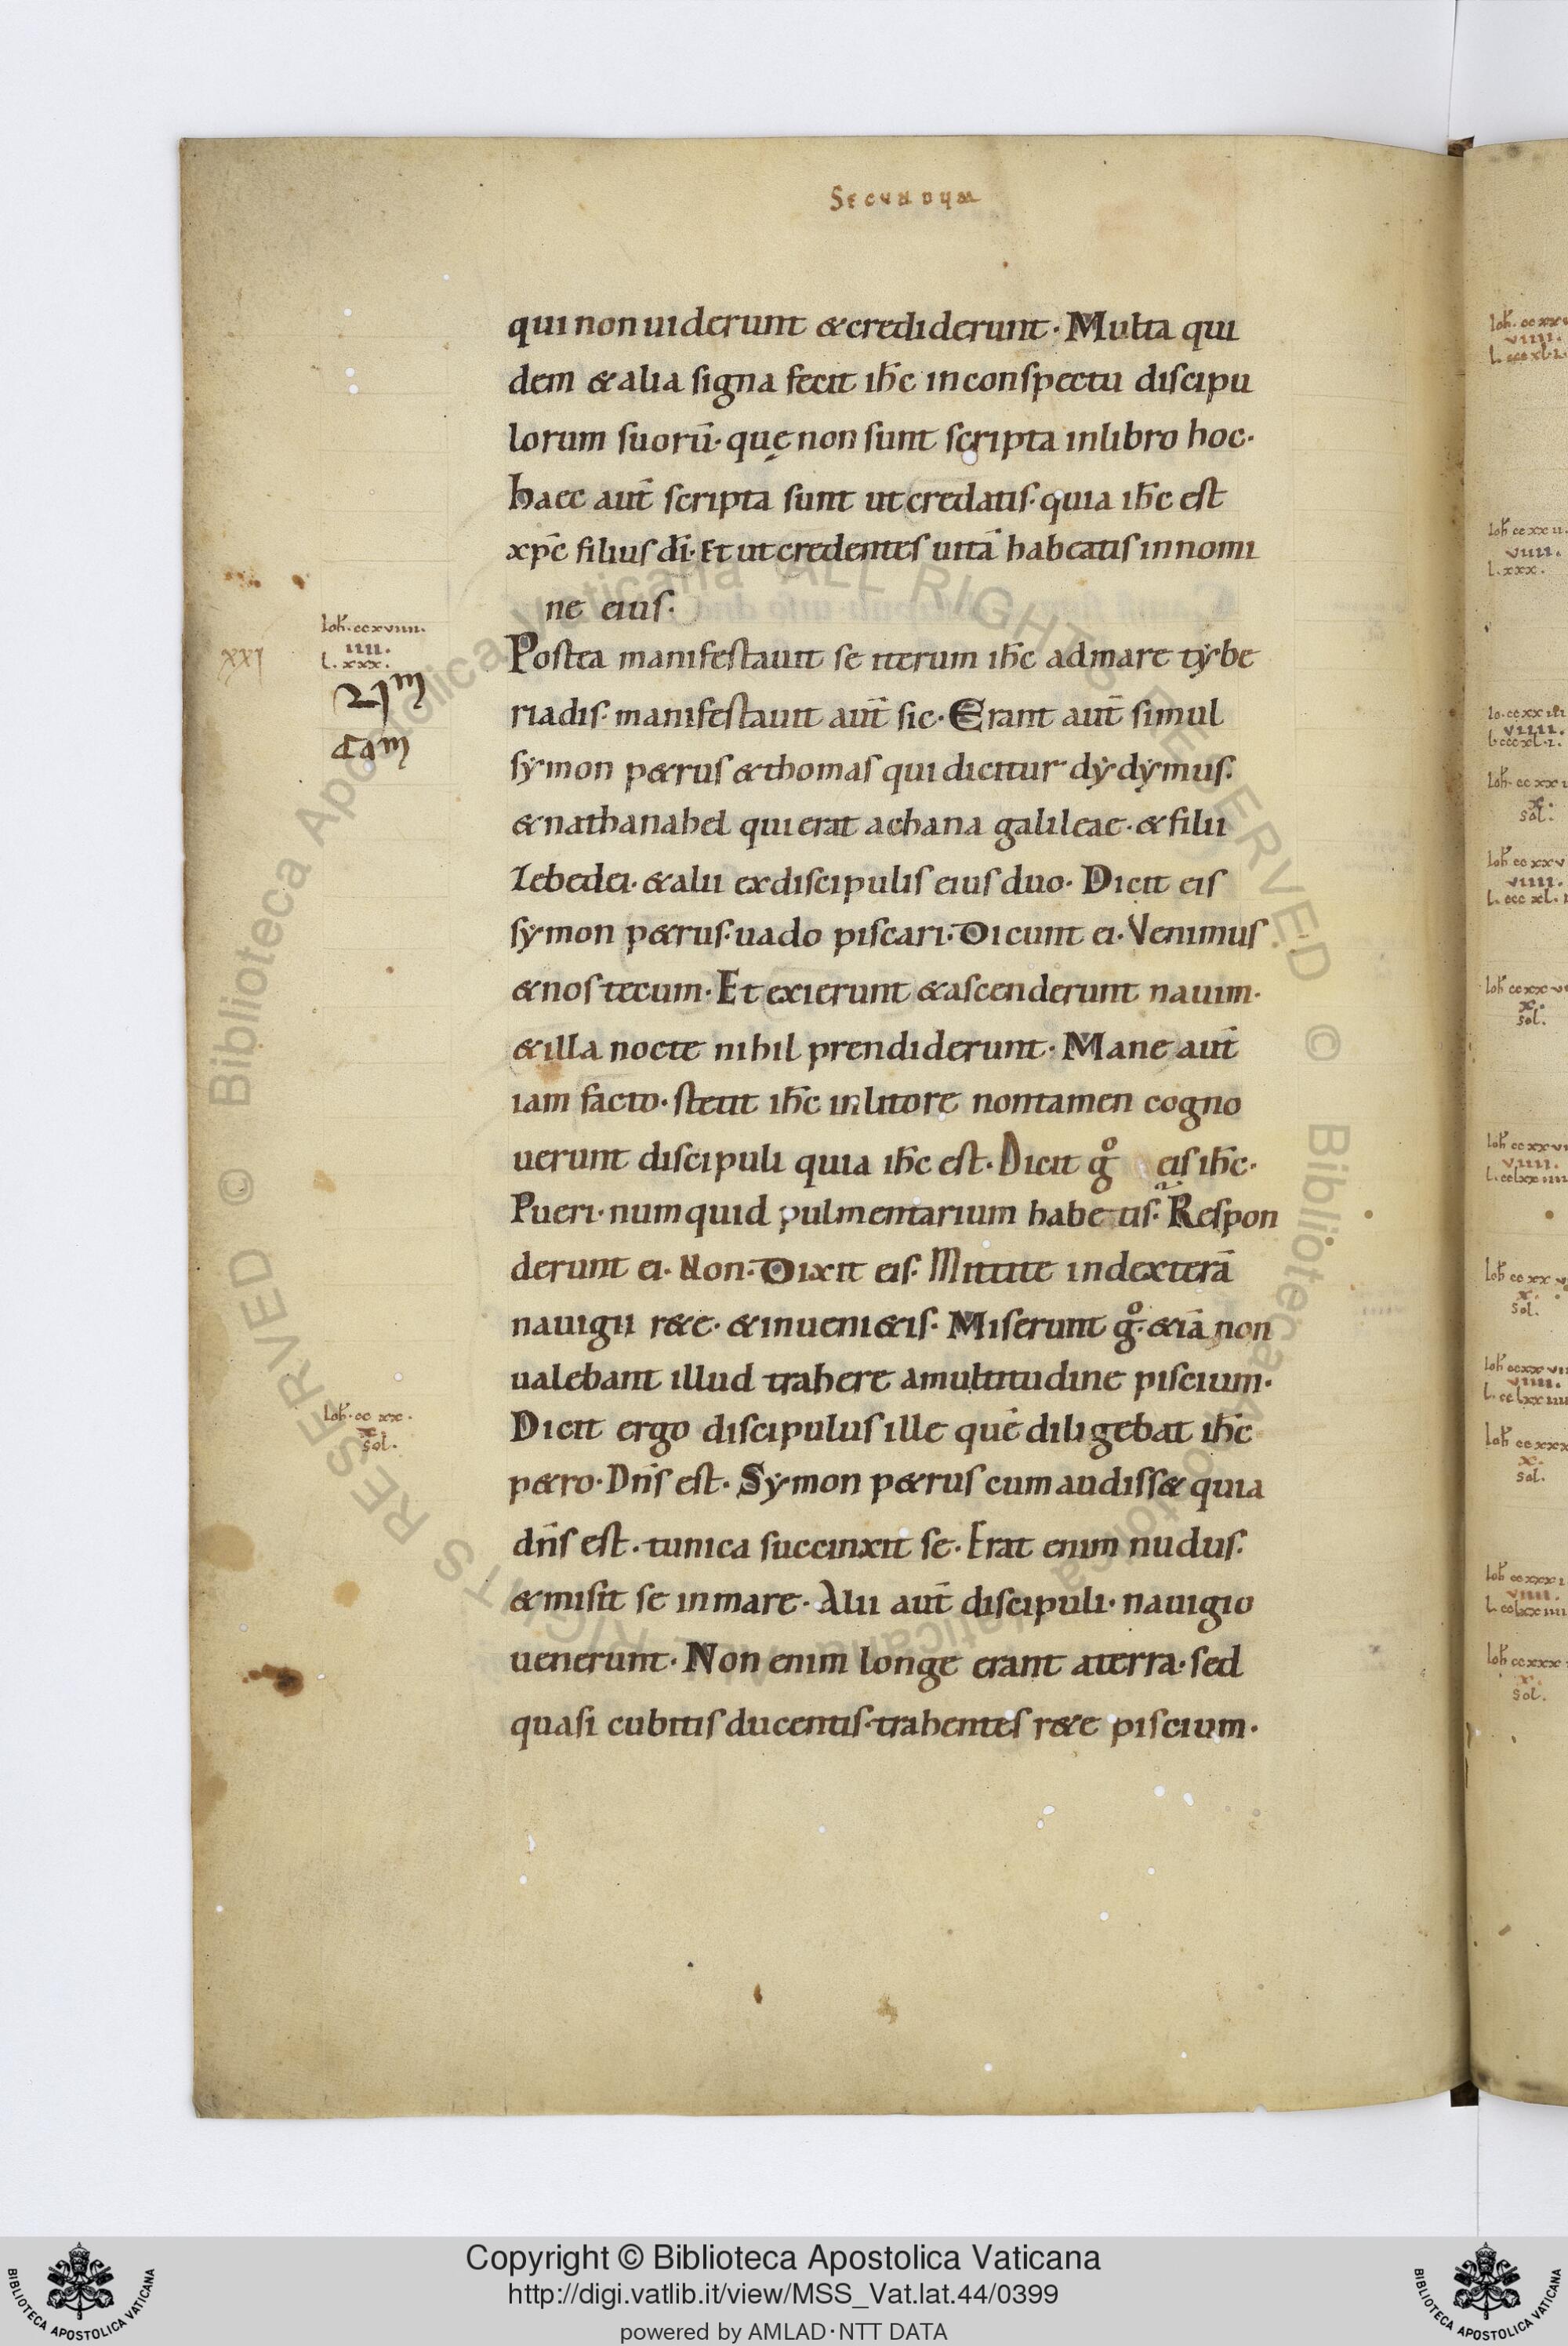 Secundum
qui non uiderunt & crediderunt· Multa qui
dem & alia signa fecit ih̅c in conspectu discipu
lorum suoru̅· quę non sunt scripta in libro hoc·
haec aut̅ scripta sunt ut credatis· quia ih̅c est
xp̅c filius di̅· Et ut credentes uita̅ habeatis in nomi
ne eius·
Ioh̅· ccxviiii·
iiii·
l· xxx·
XXI
Postea manifestauit se iterum ih̅c ad mare tẏbe
riadis· manifestauit aut̅ sic· Erant aut̅ simul
sẏmon p&rus & thomas qui dicitur dẏdẏmus·
& nathanahel qui erat a chana galileae· & filii
Zebedei· & alii ex discipulis eius duo· Dicit eis
sẏmon p&rus· uado piscari· Dicunt ei· Venimus
& nos tecum· Et exierunt & ascenderunt nauim·
& illa nocte nihil prendiderunt· Mane aut̅
iam facto· stetit ih̅c in litore non tamen cogno
uerunt discipuli quia ih̅c est· Dicit gͦ eis ih̅c·
Pueri· numquid pulmentarium habetis· Respon
derunt ei· Non· Dixit eis· Mittite in dextera̅
nauigii r&e· & inueni&is· Miserunt gͦ· & ia̅ non
ualebant illud trahere a multitudine piscium·
Ioh̅· cc xx·
x·
sol·
Dicit ergo discipulus ille que̅ diligebat ih̅c
p&ro· Dn̅s est· Sẏmon p&rus cum audiss& quia
dn̅s est· tunica succinxit se· Erat enim nudus·
& misit se in mare· Alii aut̅ discipuli· nauigio
uenerunt· Non enim longe erant a terra· sed
quasi cubitis ducentis· trahentes r&e piscium·
© Biblioteca Apostolica Vaticana ALL RIGHTS RESERVED
© Biblioteca Apostolica Vaticana ALL RIGHTS RESERVED
Copyright © Biblioteca Apostolica Vaticana
http://digi.vatlib.it/view/MSS_Vat.lat.44/0399
powered by AMLAD·NTT DATA
BIBLIOTECA APOSTOLICA VATICANA
BIBLIOTECA APOSTOLICA VATICANA